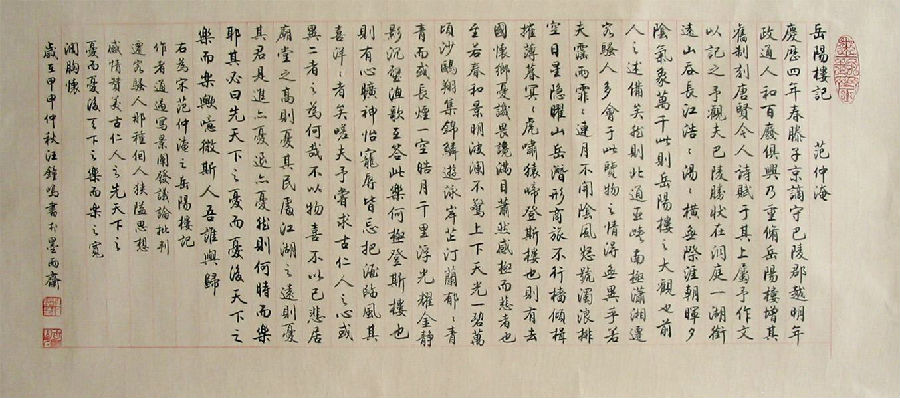 岳陽樓記 范仲淹
慶歷四年春滕子京謫守巴陵郡越明年
政通人和百廢俱興乃重脩岳陽樓增其
舊制刻唐賢今人詩賦于其上屬予作文
以記之予觀夫巴陵勝狀在洞庭一湖銜
遠山吞長江浩〻湯〻橫無際涯朝暉夕
陰氣象萬千此則岳陽樓之大觀也前
人之述備矣然則北通巫峽南極瀟湘遷
客騷人多會于此覽物之情得無異乎若
夫霪雨霏〻連月不開陰風怒號濁浪排
空日星隱曜山岳潛形商旅不行檣傾楫
摧薄暮冥〻虎嘯猿啼登斯樓也則有去
國懷鄉憂讒畏譏滿目蕭然感極而悲者也
至若春和景明波瀾不驚上下天光一碧萬
頃沙鷗翔集錦鱗游泳岸芷汀蘭郁〻青
青而或長煙一空皓月千里浮光耀金靜
影沉璧漁歌互答此樂何極登斯樓也
則有心曠神怡寵辱皆忘把酒臨風其
喜洋〻者矣嗟夫予嘗求古仁人之心或
異二者之為何哉不以物喜不以己悲居
廟堂之高則憂其民處江湖之遠則憂
其君是進亦憂退亦憂然則何時而樂
耶其必曰先天下之憂而憂後天下之
樂而樂歟噫微斯人吾誰與歸
右為宋范仲淹之岳陽樓記
作者通過寫景闡發議論批判
遷客騷人那種個人狹隘思想
感情贊美古仁人之先天下之
憂而憂後天下之樂而樂之寬
闊胸懷
歲在甲申仲秋汪鐘鳴書於墨雨齋